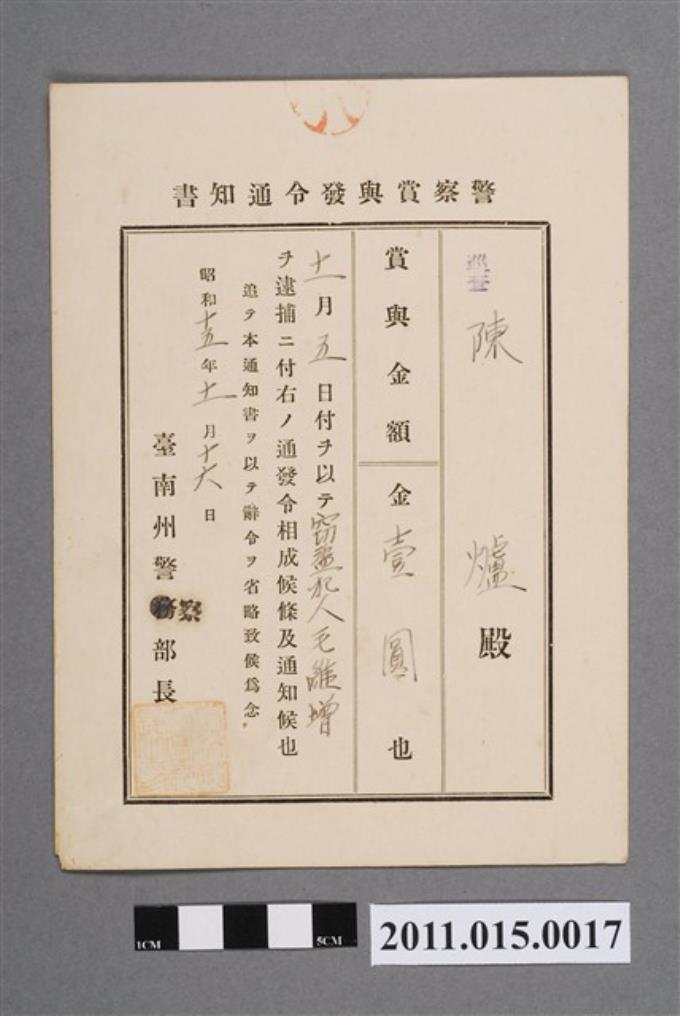 警察賞與發令通知書
巡查 陳爐殿
賞與金額 金壹圓也
十一月五日付ヲ以テ窃盜犯人毛雖增
ヲ逮捕ニ付右ノ通發令相成候條及通知候也
追テ本通知書ヲ以テ辭令ヲ省略致候爲念
昭和十五年十一月十六日
臺南州警察部長
1CM
5CM
2011.015.0017